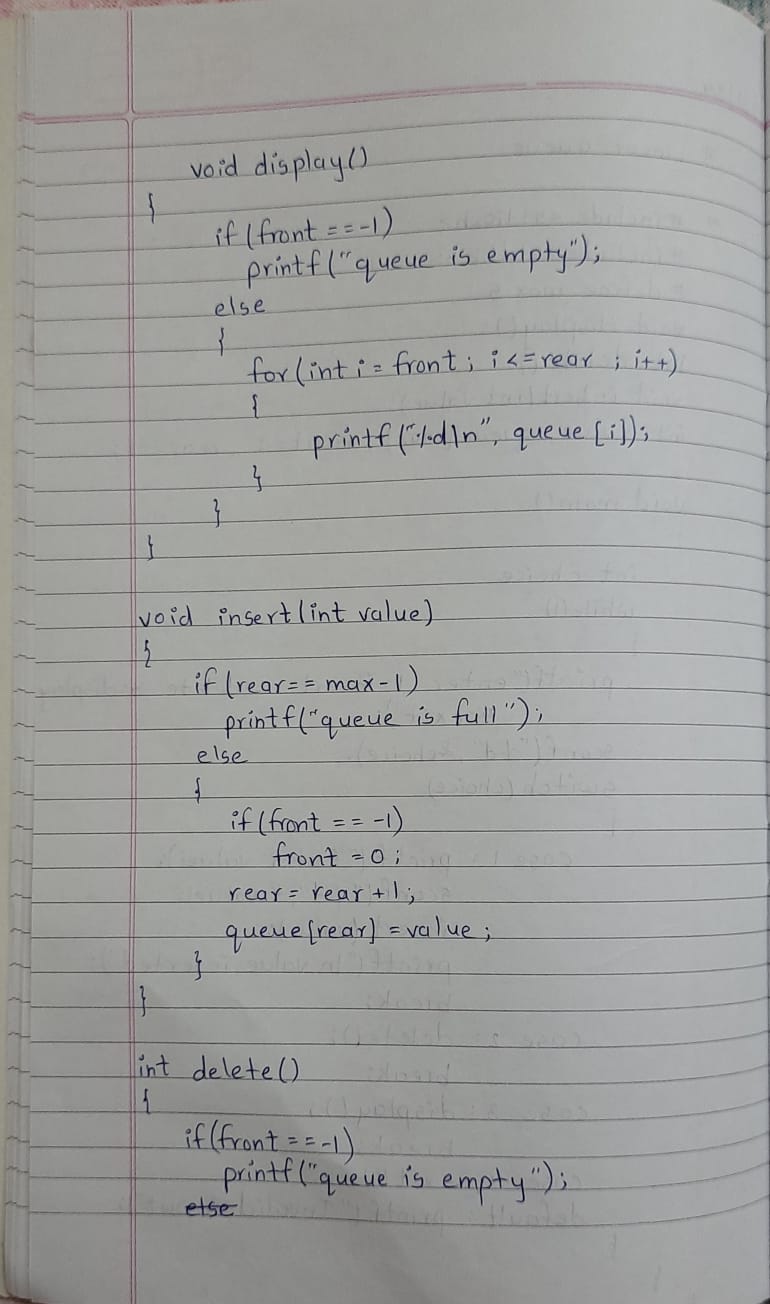 void display()
{
if (front == -1)
printf("queue is empty");
else
{
for (int i = front; i <= rear ; i++)
{
printf("%d\n", queue [i]);
}
}
}
void insert (int value)
{
if (rear == max-1)
printf("queue is full");
else
{
if (front == -1)
front = 0;
rear = rear + 1;
queue[rear] = value;
}
}
int delete()
{
if(front == -1)
printf("queue is empty");
else